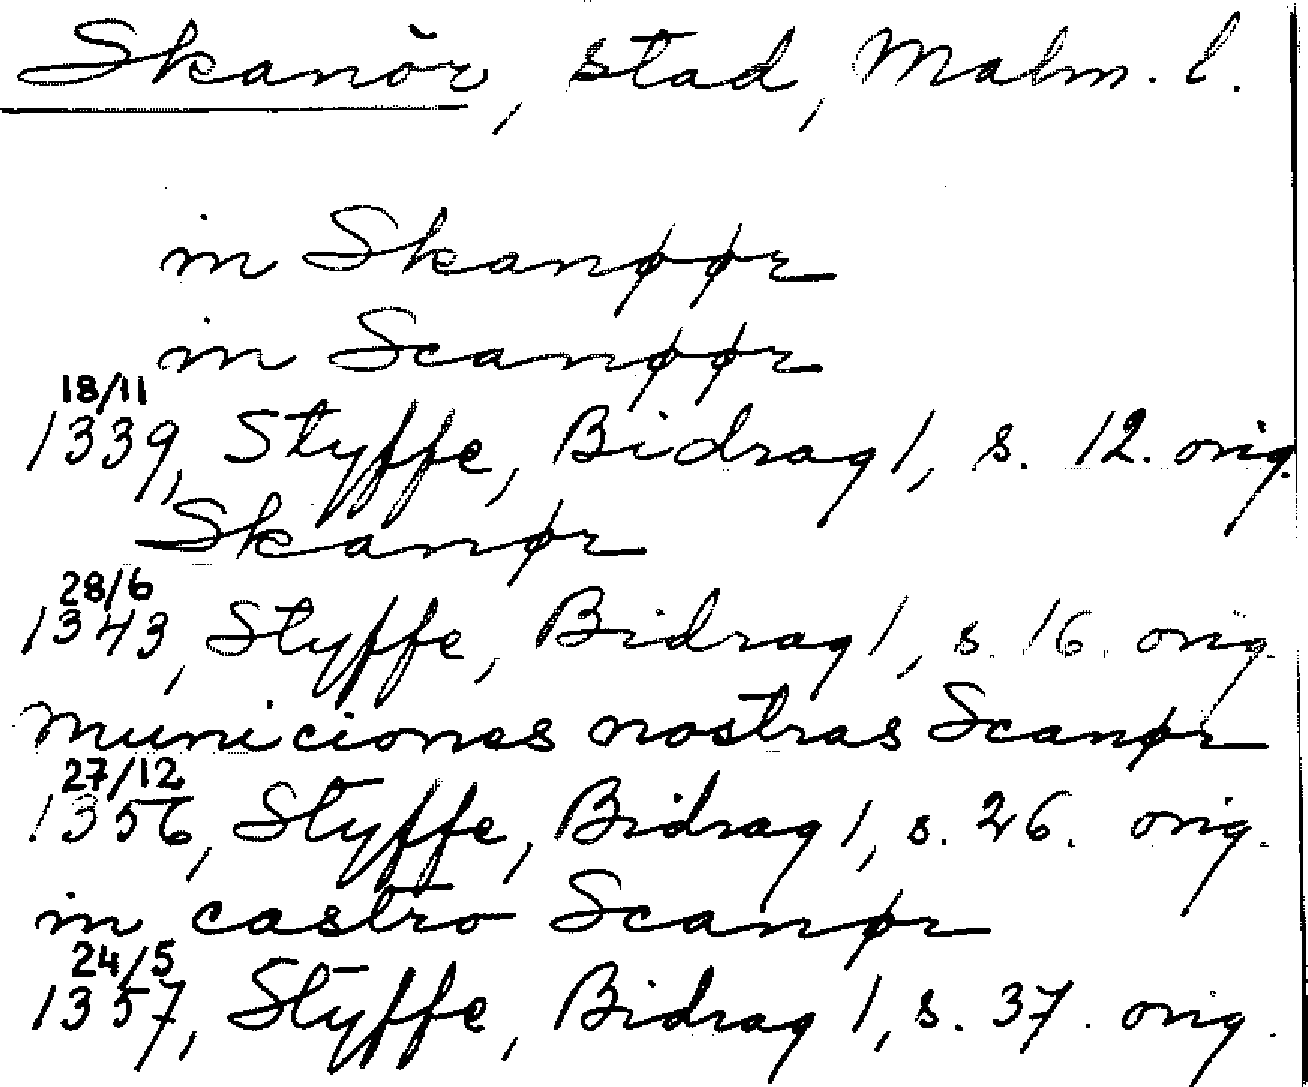 Skanör, stad, Malm. l.
in Skanøør
in Scanøør
18/11
1339, Styffe, Bidrag 1, s. 12. orig.
Skanør
28/6
1343, Styffe, Bidrag 1, s. 16. orig.
municiones nostras Scanør
27/12
1356, Styffe, Bidrag 1, s. 26. orig.
in castro Scanør
24/5
1357, Styffe, Bidrag 1, s. 37. orig.